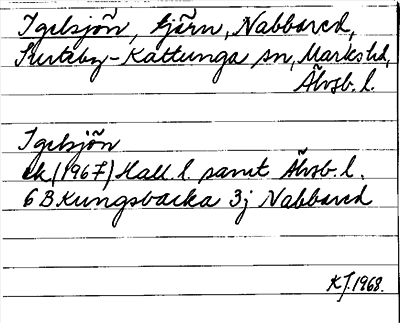 Igelsjön, tjärn, Nabbared,
Surteby-Kattunga sn, Marks hd,
Älvsb. l.
Igelsjön
ek (1967) Hall. l. samt Älvsb. l.
6 B Kungsbacka 3j Nabbared
KJ. 1968.